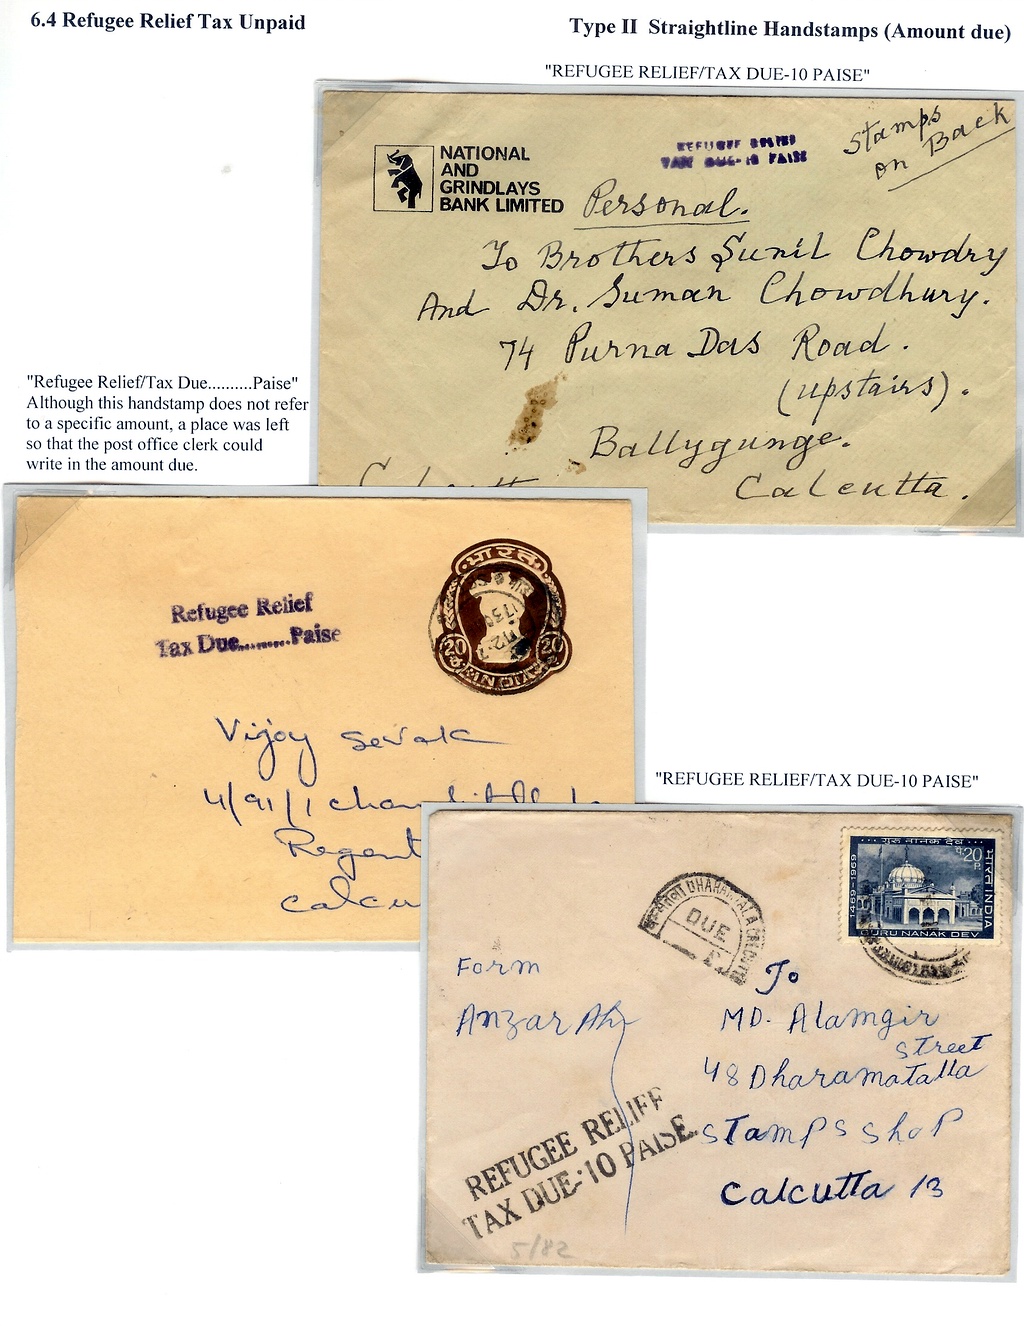 6.4 Refugee Relief Tax Unpaid
Type II  Straightline Handstamps (Amount due)
"REFUGEE RELIEF/TAX DUE-10 PAISE"
NATIONAL
AND
GRINDLAYS
BANK LIMITED
REFUGEE RELIEF
TAX DUE-10 PAISE
Stamps
on Back
Personal.
To Brothers Sunil Chowdry
And Dr. Suman Chowdhury.
74 Purna Das Road.
(upstairs).
Ballygunge.
Calcutta.
"Refugee Relief/Tax Due..........Paise"
Although this handstamp does not refer
to a specific amount, a place was left
so that the post office clerk could
write in the amount due.
Refugee Relief
Tax Due..........Paise
भारत
20 20
INDIA
Vijoy Sevak
4/91/1
Regent
Calcu
"REFUGEE RELIEF/TAX DUE-10 PAISE"
DHARAMTALA CALCUTTA
DUE
गुरु नानक देव
1469-1969
20
P
भारत INDIA
GURU NANAK DEV
Form
Anzar Ali
To
MD. Alamgir
Street
48 Dharamatalla
Stamps Shop
Calcutta 13
REFUGEE RELIEF
TAX DUE-10 PAISE.
5/82